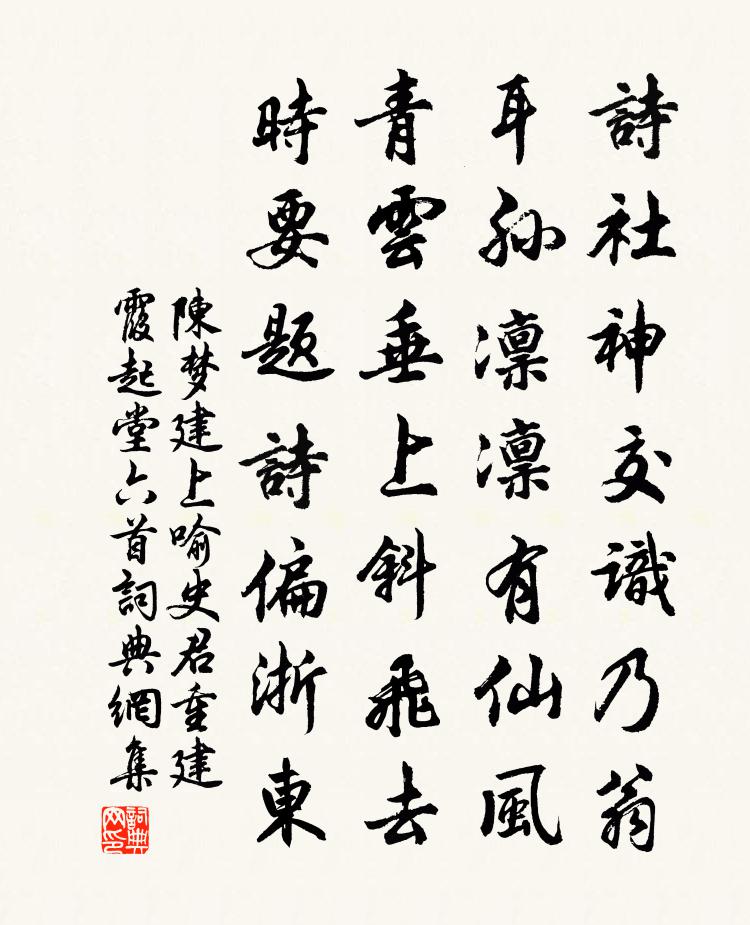 詩社神交識乃翁
耳孫凛凛有仙風
青雲垂上斜飛去
時要题詩偏浙東
陳梦建上喻史君重建
霞起堂六首詞典網集
詞典
网印